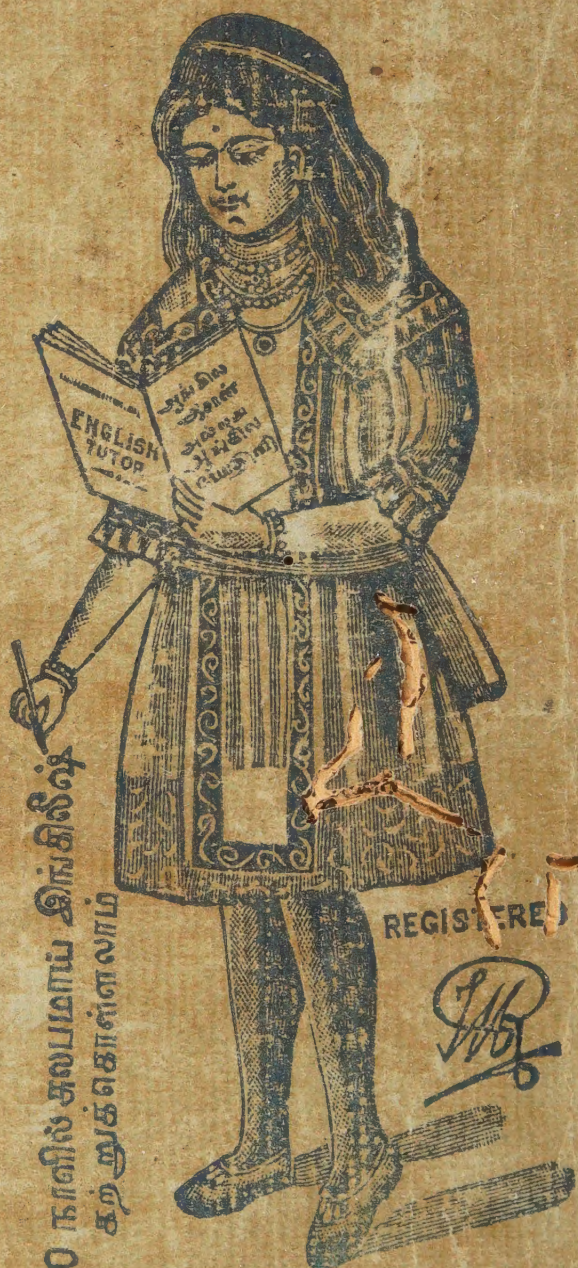 ENGLISH
TUTOR
ஆங்கில
அல்லது
ஆங்கில
REGISTERED
நாளில் சுலபமாய் இங்கிலீஷ்
கற்றுக்கொள்ளலாம்